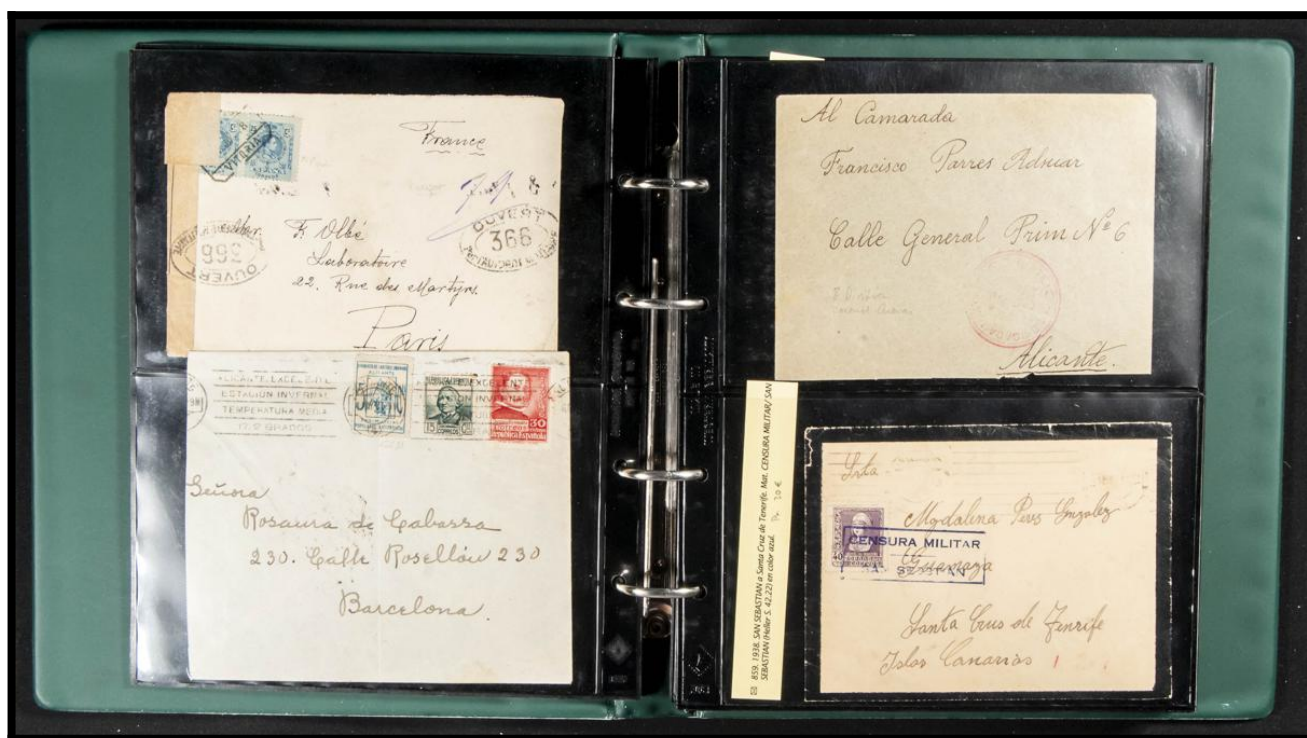 France
OUVERT
366
OUVERT
366
F. Olbé
Laboratoire
22. Rue des Martyrs.
Paris
ESTACION INVERNAL
TEMPERATURA MEDIA
GRADOS
15
CORREOS
30
Señora
Rosaura de Cabassa
230. Calle Rosellón 230
Barcelona.
Al Camarada
Francisco Parres Adsuar
Calle General Prim Nº 6
Alicante.
859. 1938. SAN SEBASTIAN a Santa Cruz de Tenerife. Mat. CENSURA MILITAR/ SAN
SEBASTIAN (Heller S. 42.22) en color azul. 20 €
Srta
Magdalena
40
CENSURA MILITAR
Guamaza
Santa Crus de Tenrife
Islas Canarias